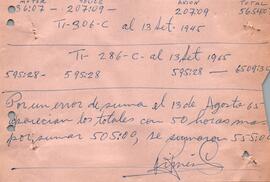 MOTOR HELICE AVION
36:07 - 207:09 - 207:09
TI-306-C al 13 set-1965
TI-286-C- al 13 set-1965
595:28- 595:28 595:28
Por un error de suma el 13 de Agosto 65
aparecian los totales con 50 horas mas
por sumar 505:00, se sumaron 555:00